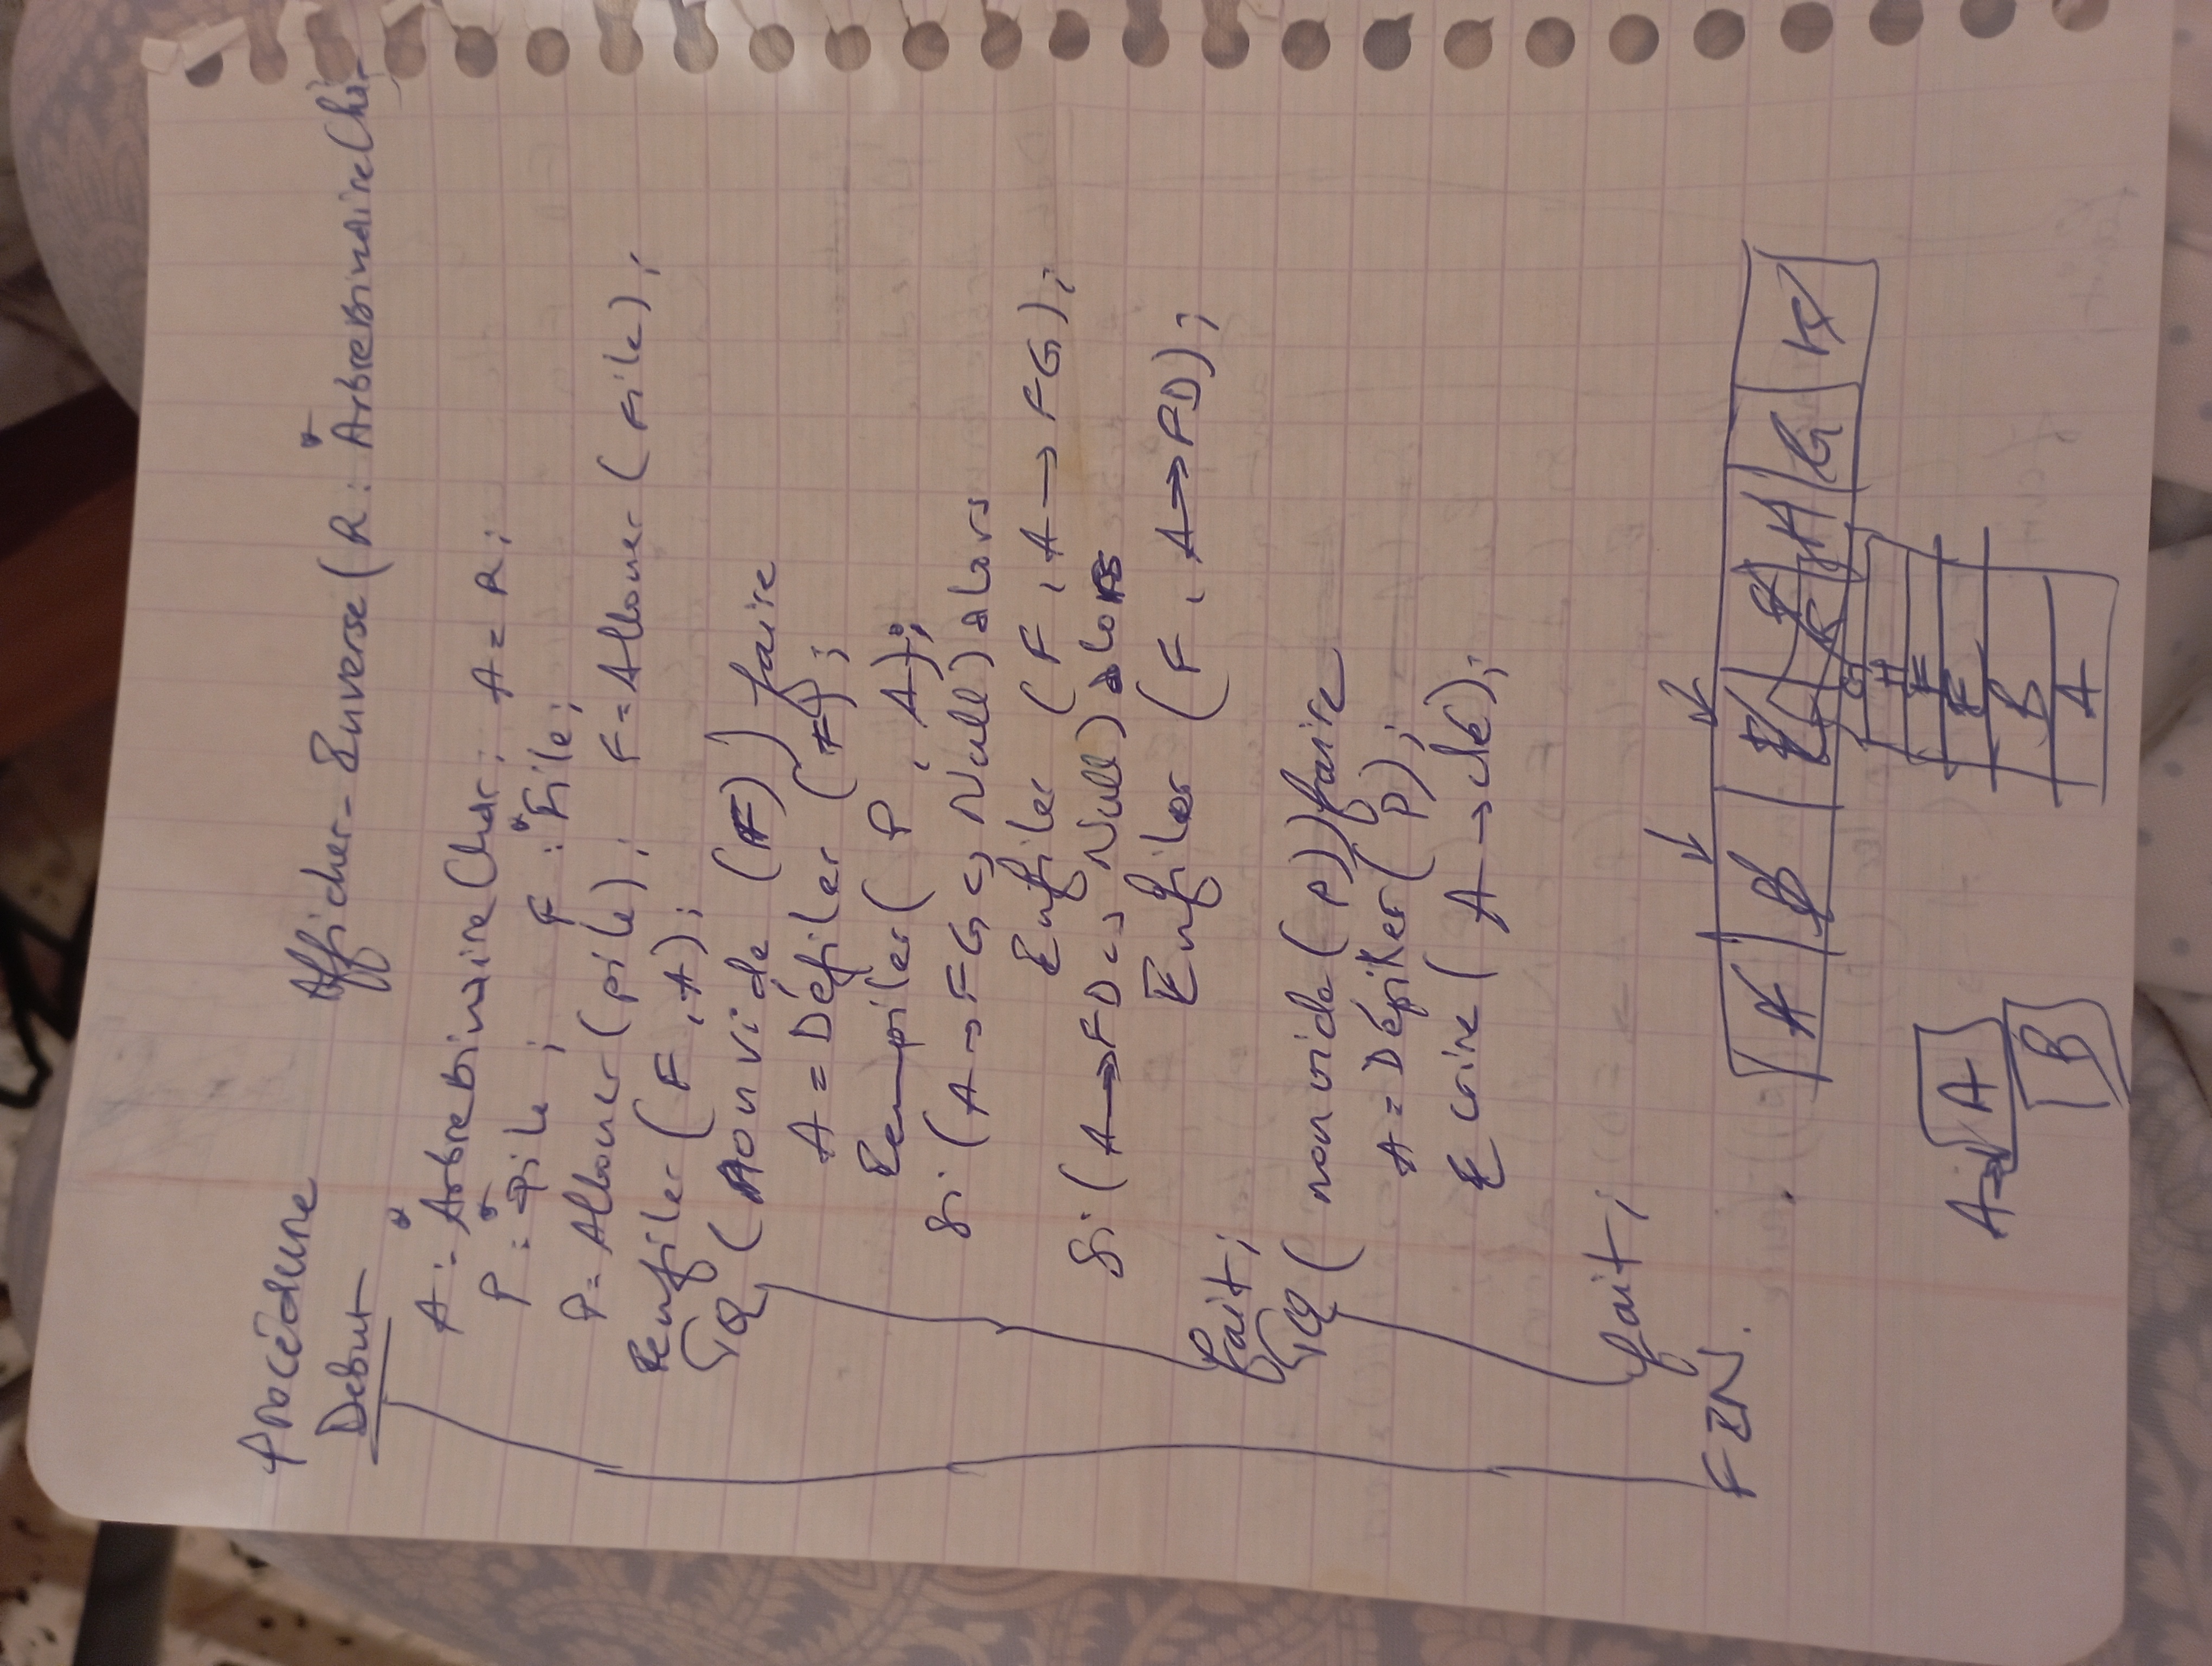 Procédure Afficher-Inverse(R: *ArbreBinaireChar
Debut
A: *ArbrebinaireChar; A=R;
P: *Pile; F: *File;
P=Allouer(pile); F=Allouer(File);
Enfiler(F,A);
TQ(Non vide(F)) faire
A=Défiler(F);
Empiler(P,A);
Si(A→FG<>Null) alors
Enfiler(F,A→FG);
Si(A→FD<>Null) alors
Enfiler(F,A→FD);
fait;
TQ(non vide(P)) faire
A=Dépiler(P);
Ecrire(A→clé);
fait;
FIN.
A B E H G K
A→ A
B
G
H
F
E
B
A